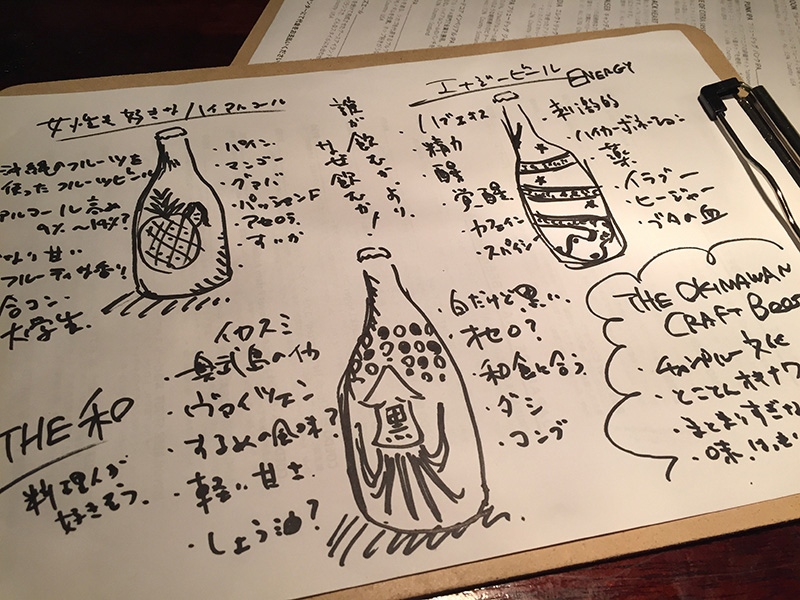 女性も好きなハイアルコール
沖縄のフルーツを
使ったフルーツビール
アルコール高め
9%〜14%?
甘い
フルーティな香り
合コン
大学生
・パイン
・マンゴー
・グァバ
・パッションF
・アセロラ
・すいか
誰が飲むかより、
なぜ飲むか!
エナジービール ENERGY
・精力
・醒
・覚醒
・カフェイン
・スパイシー
・刺激的
・ハイカーボネーション
・薬
・イラブー
・ヒージャー
・ブタの血
THE 和
料理人が
好きそう。
イカスミ
・奥武島のイカ
・ヴァイツェン
・するめの風味?
・軽い甘さ
・しょう油?
黒
・白だけど黒い
・オセロ?
・和食に合う
・ダシ
・コンブ
THE OKINAWAN
CRAFT Beer
・チャンプルー文化
・とことんオキナワ
・まとまりすぎない
・味